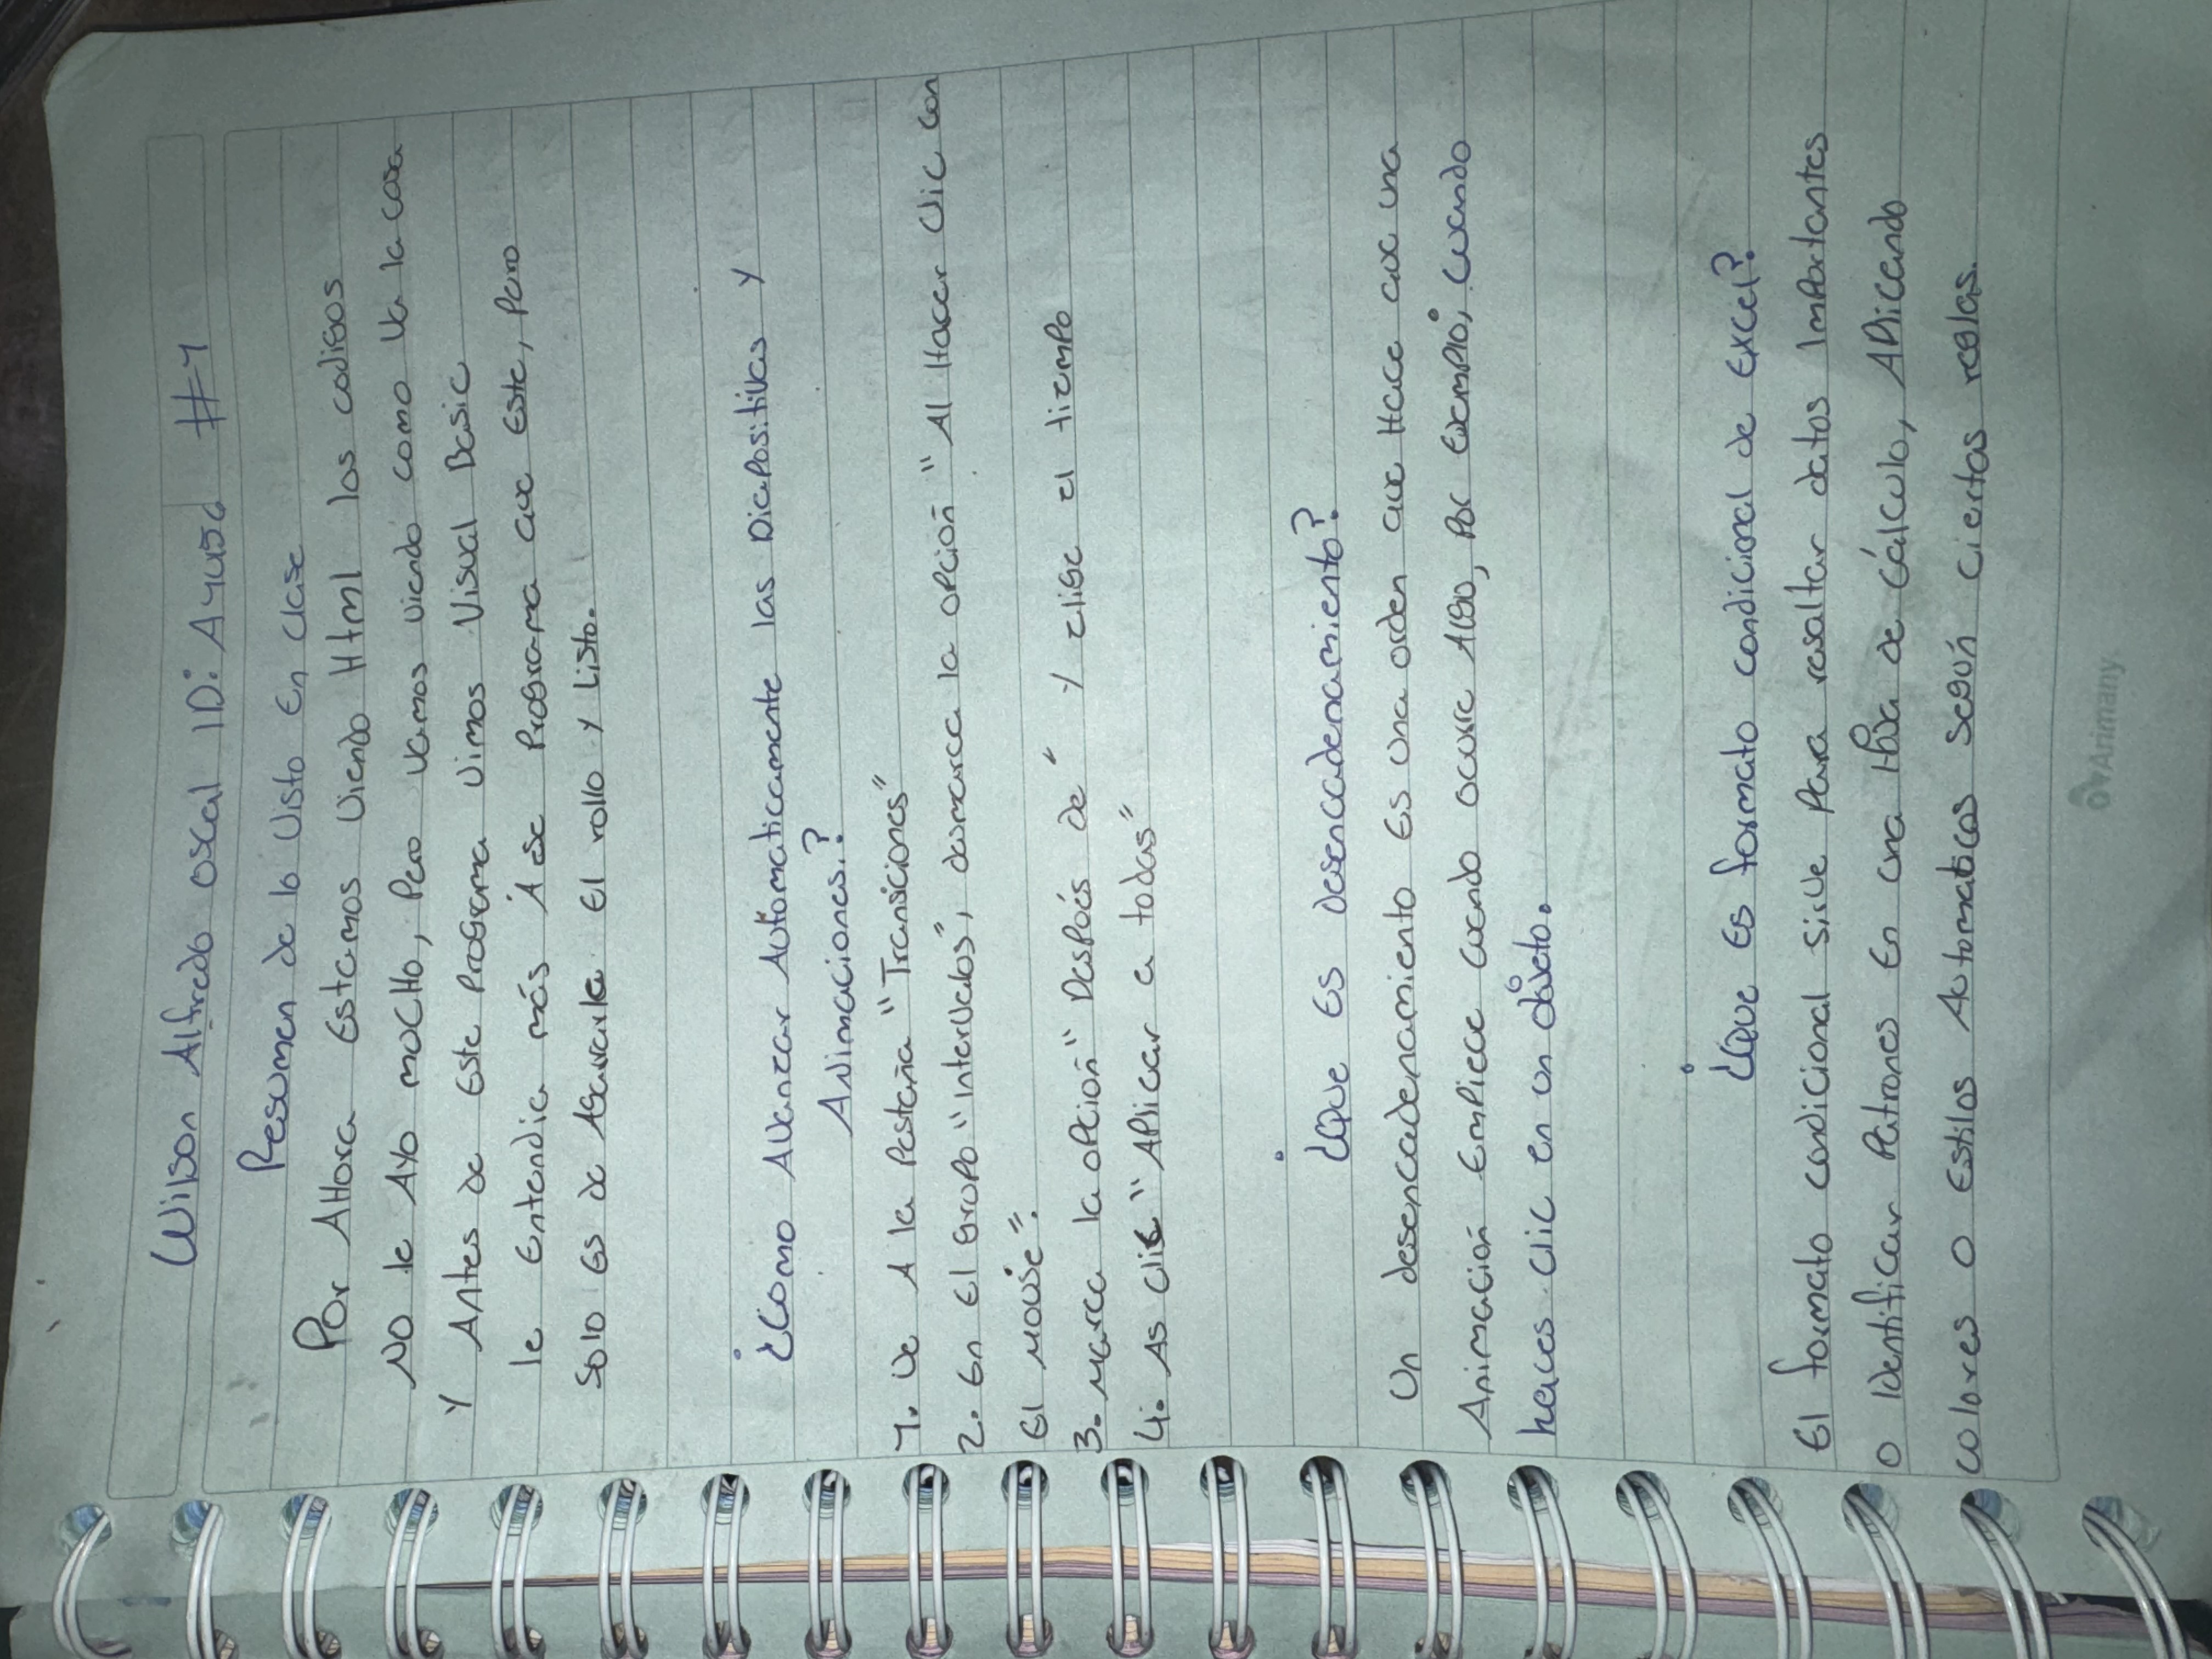 Wilson Alfredo oscal ID: A4456 #4
Resumen de lo Visto En clase
Por AHora Estamos Viendo Html los codigos
No le AYo mucHo, Pero vamos viendo como va la cosa
Y Antes de Este Programa Vimos Visual Basic
le Entendia más A ese Programa que Este, Pero
Solo Es de Agararle El rollo y Listo.
¿Como Avanzar Automaticamente las Diapositivas Y
Animaciones.?
1. Ve A la Pestaña "Transiciones"
2. En El GruPo "Intervalos", desmarca la oPción "Al Hacer Clic con
El mouse".
3. Marca la oPción "DesPués de" Y elige el tiemPo
4. As clic "APlicar a todas"
¿Que Es Desencadenamiento?
Un desencadenamiento Es una orden que Hace que una
Animación EmPiece cuando ocurre Algo, Por EjemPlo, cuando
haces clic en un objeto.
¿Que Es formato condicional de Excel?
El formato condicional sirve Para resaltar datos ImPortantes
o Identificar Patrones En una Hoja de cálculo, APlicando
colores o Estilos Automaticos según ciertas reglas.
Arimany